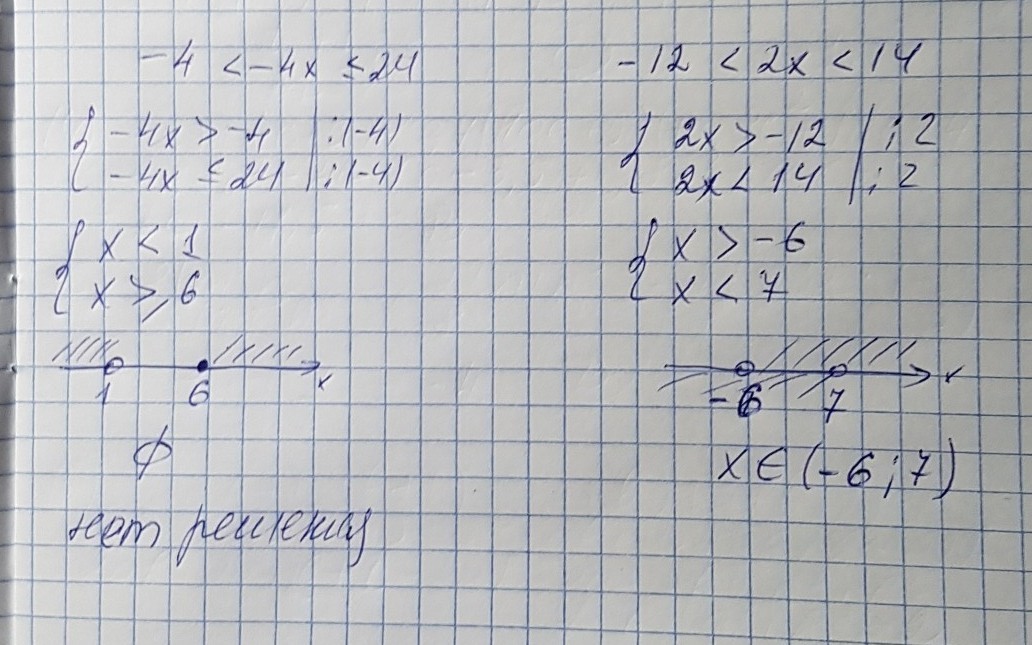 -4 < -4x ≤ 24
{ -4x > -4 | :(-4)
-4x ≤ 24 | :(-4)
{ x < 1
x ≥ 6
1 6 x
∅
нет решения
-12 < 2x < 14
{ 2x > -12 | : 2
2x < 14 | : 2
{ x > -6
x < 7
-6 7 x
x ∈ (-6; 7)